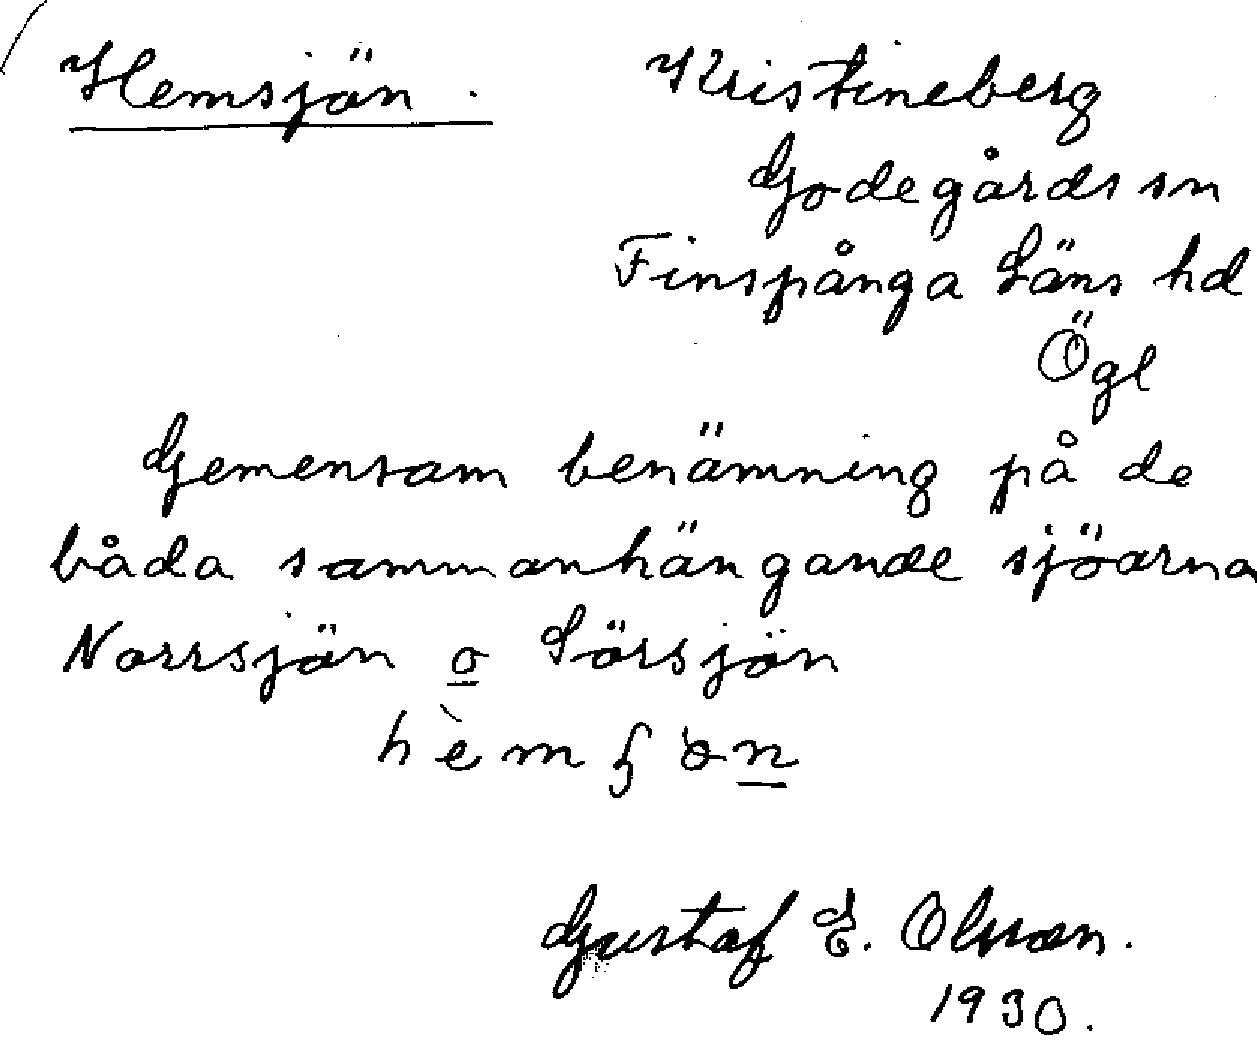 Hemsjön.
Kristineberg
Godegårds sn
Finspånga Läns hd
Ögl
Gemensam benämning på de
båda sammanhängande sjöarna
Norrsjön o Sörsjön
Gustaf E. Olsson.
1930.